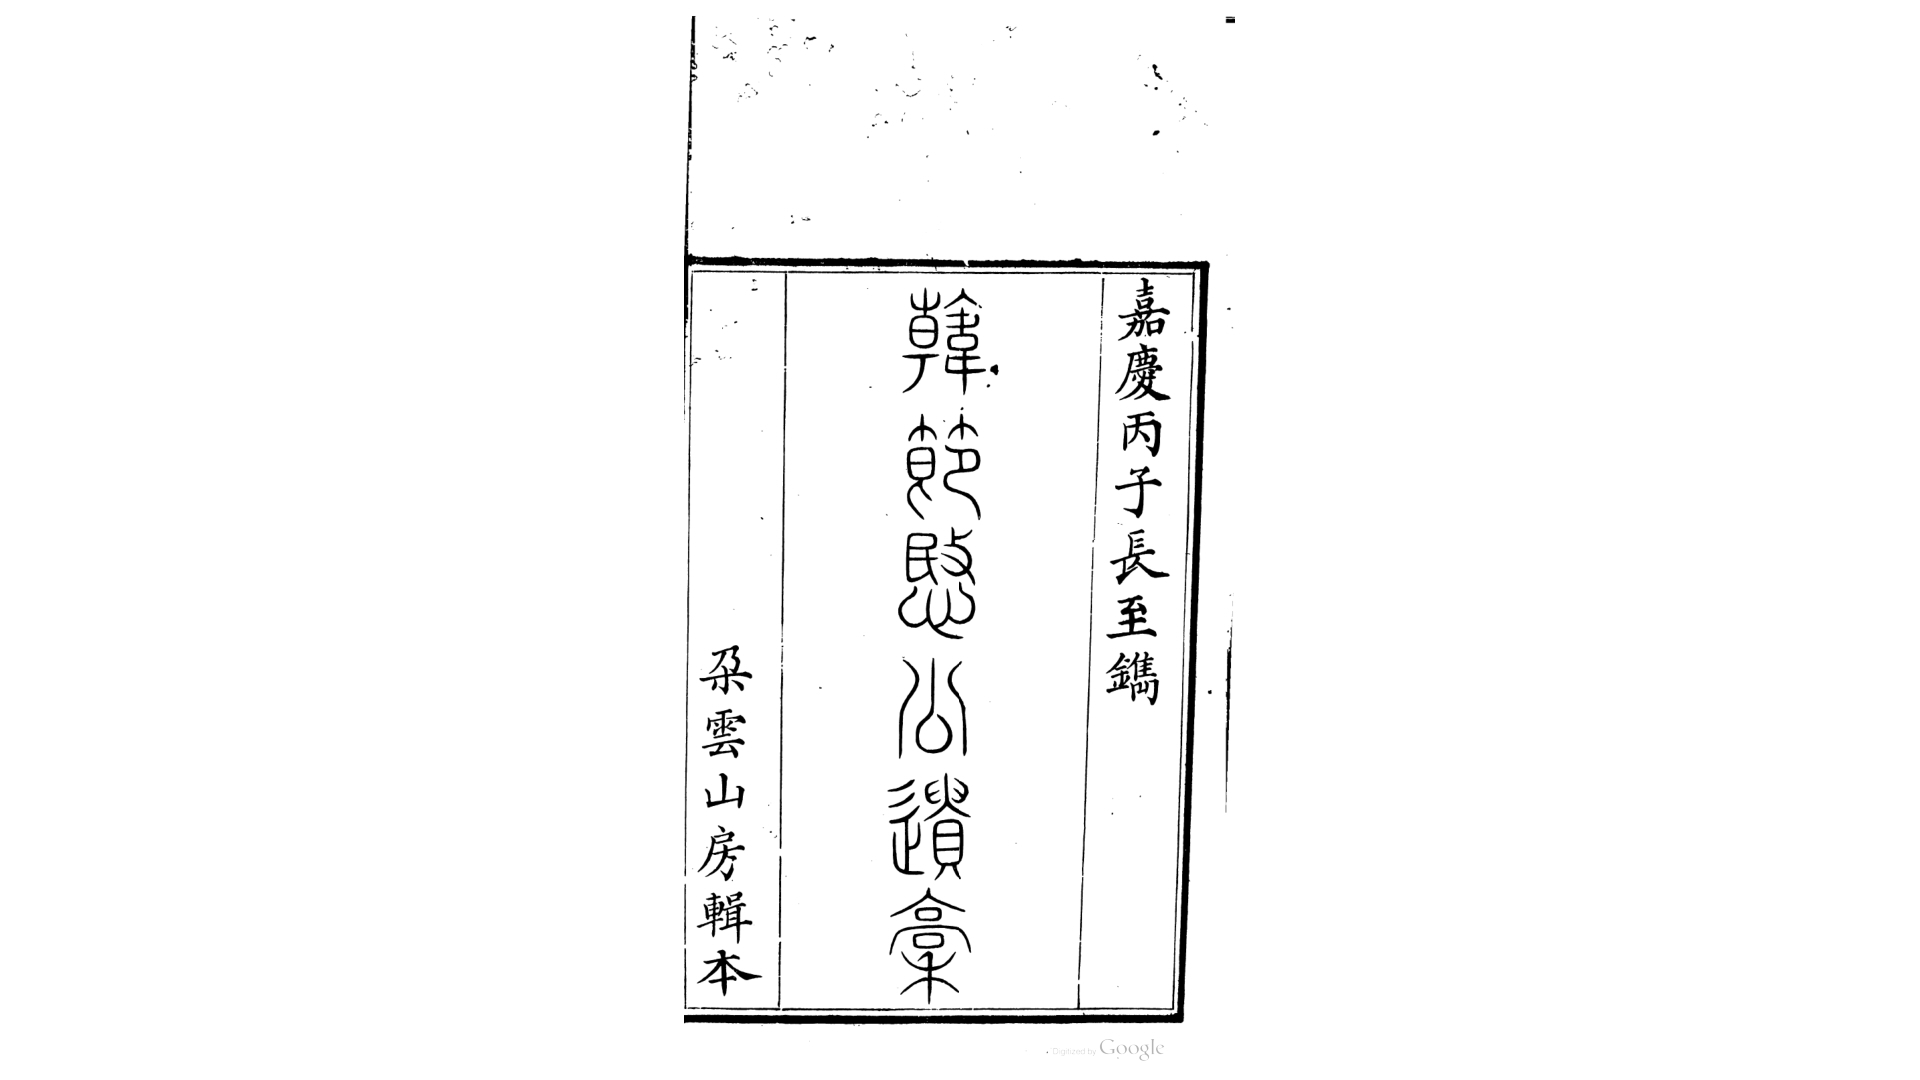 嘉慶丙子長至鐫
韓節愍公遺稾
朶雲山房輯本
Digitized by Google